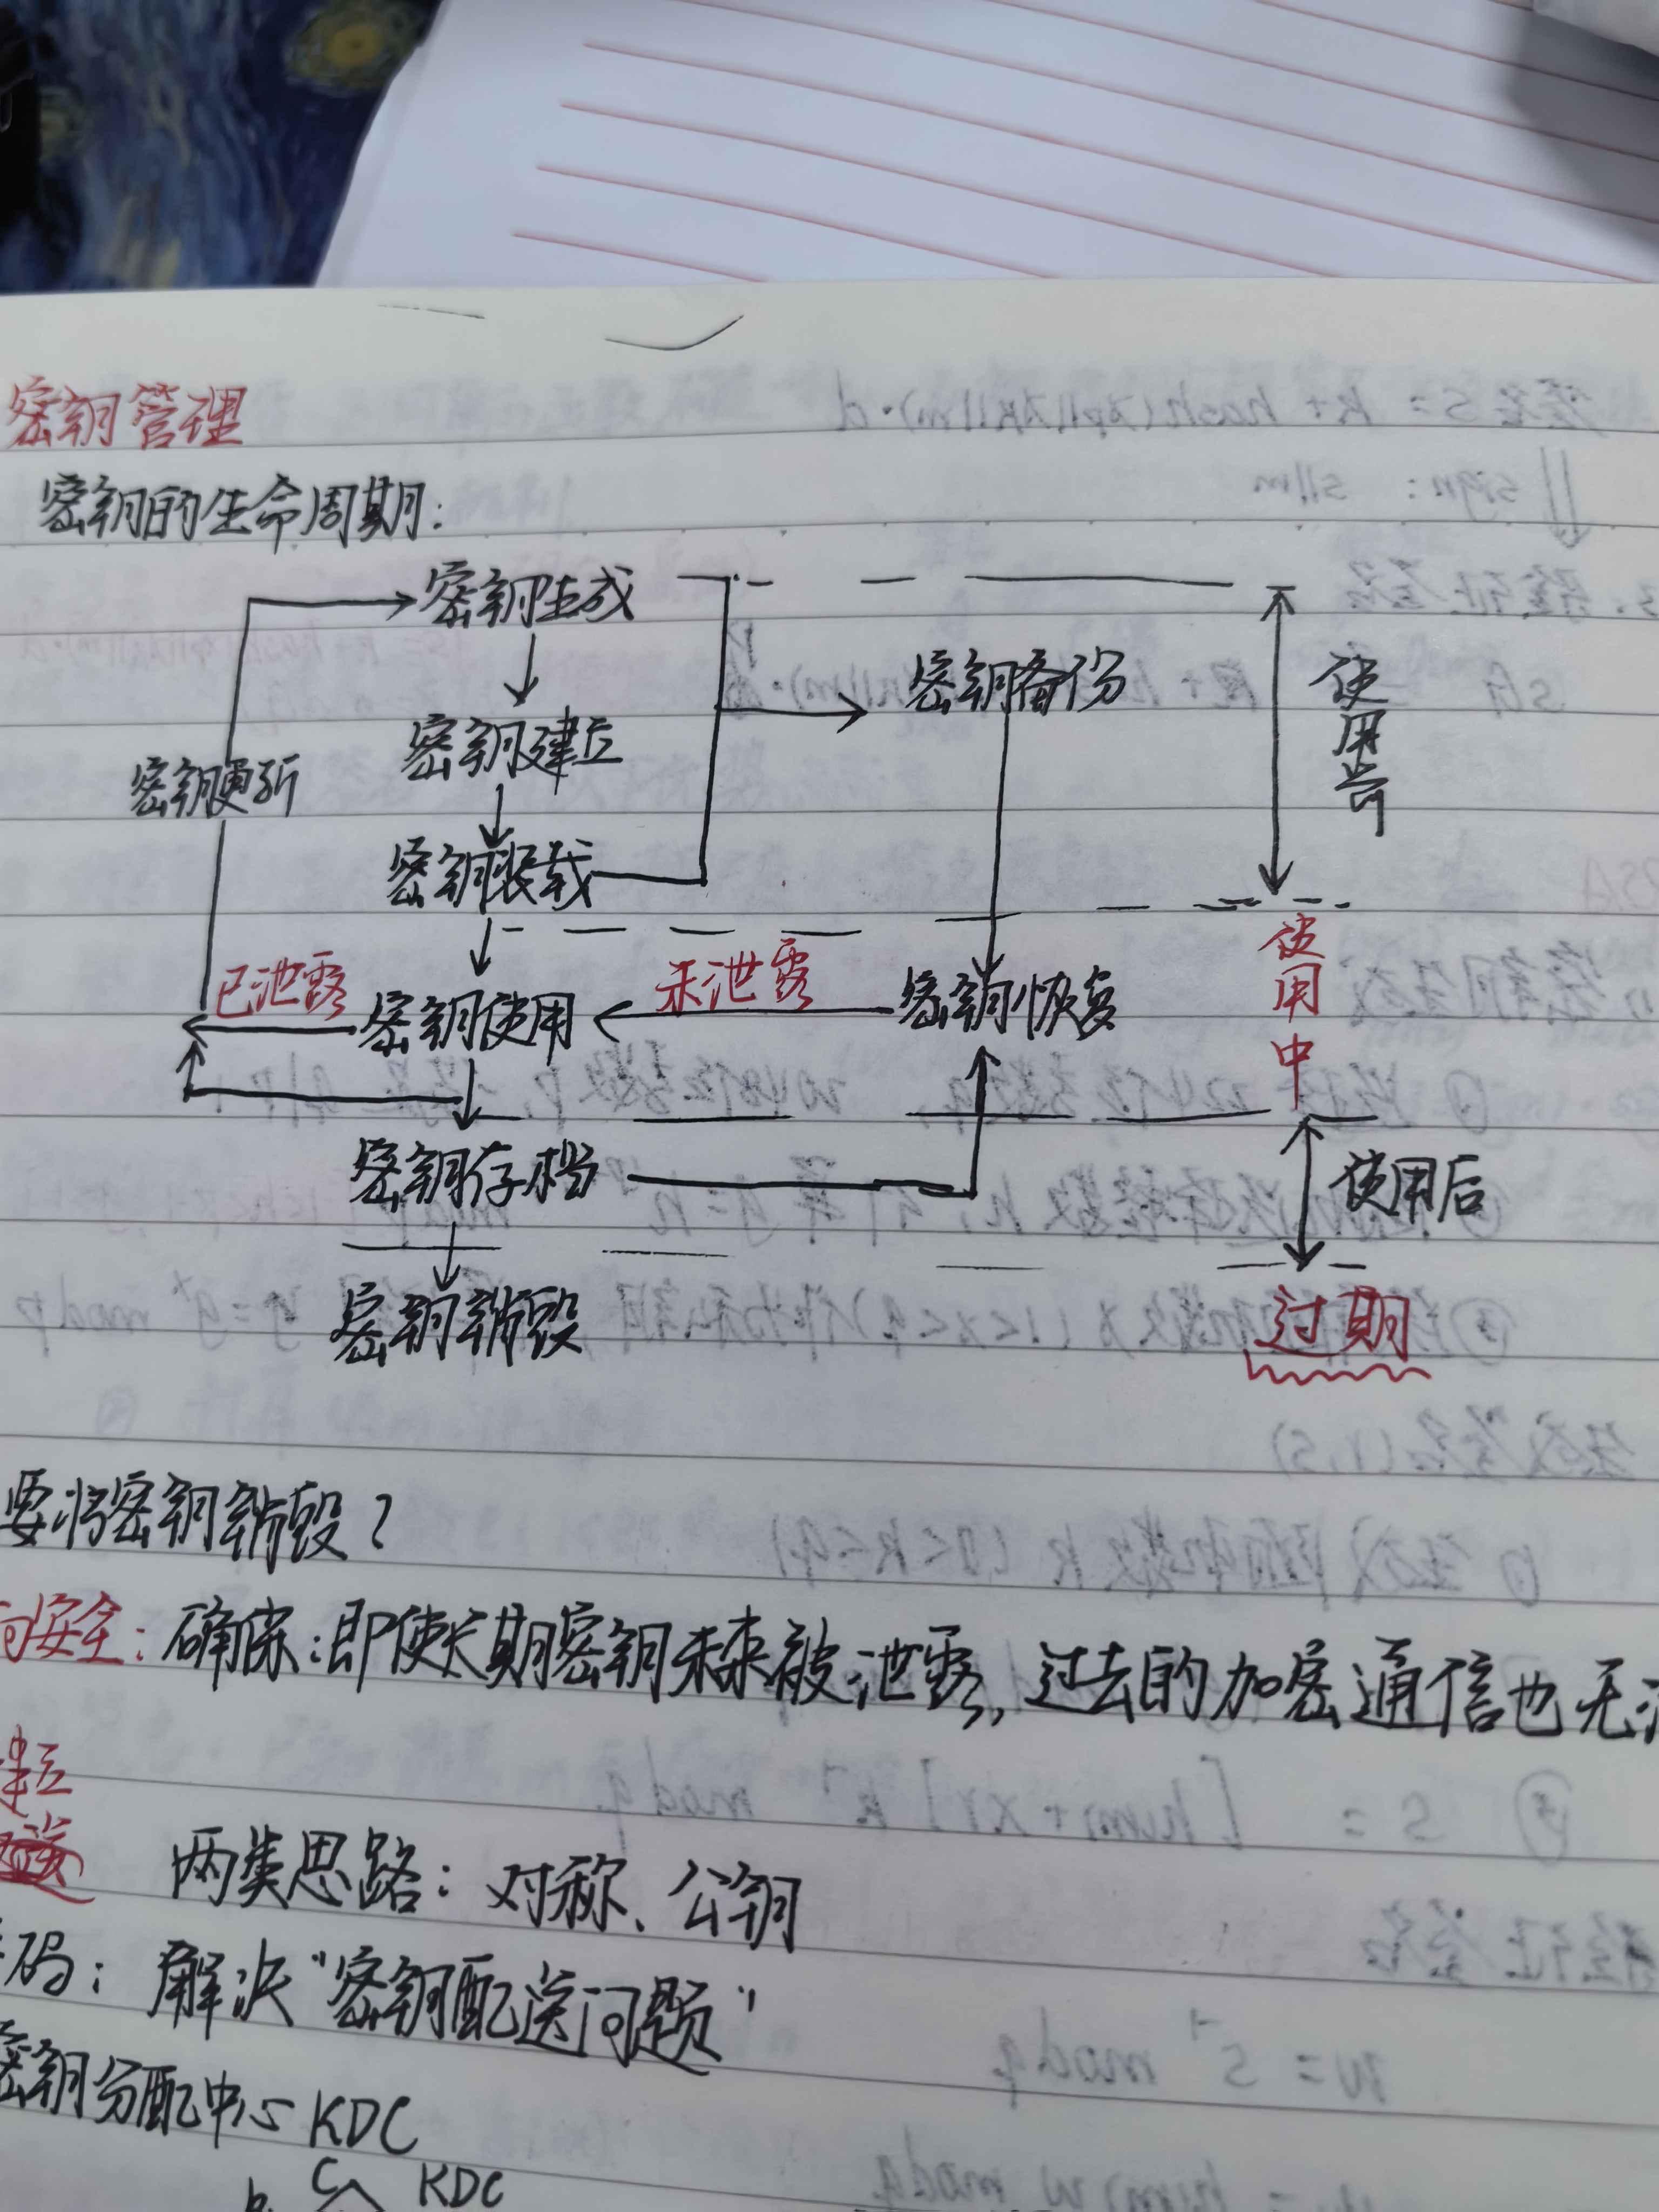 密钥管理
密钥的生命周期：
密钥生成
密钥备份
使用前
密钥建立
密钥更新
密钥装载
已泄露
密钥使用
未泄露
密钥恢复
使用中
密钥存档
使用后
密钥销毁
过期
要将密钥销毁？
向安全：确保：即使长期密钥未来被泄露，过去的加密通信也无
建立
两类思路：对称、公钥
码：解决"密钥配送问题"
密钥分配中心 KDC
C KDC